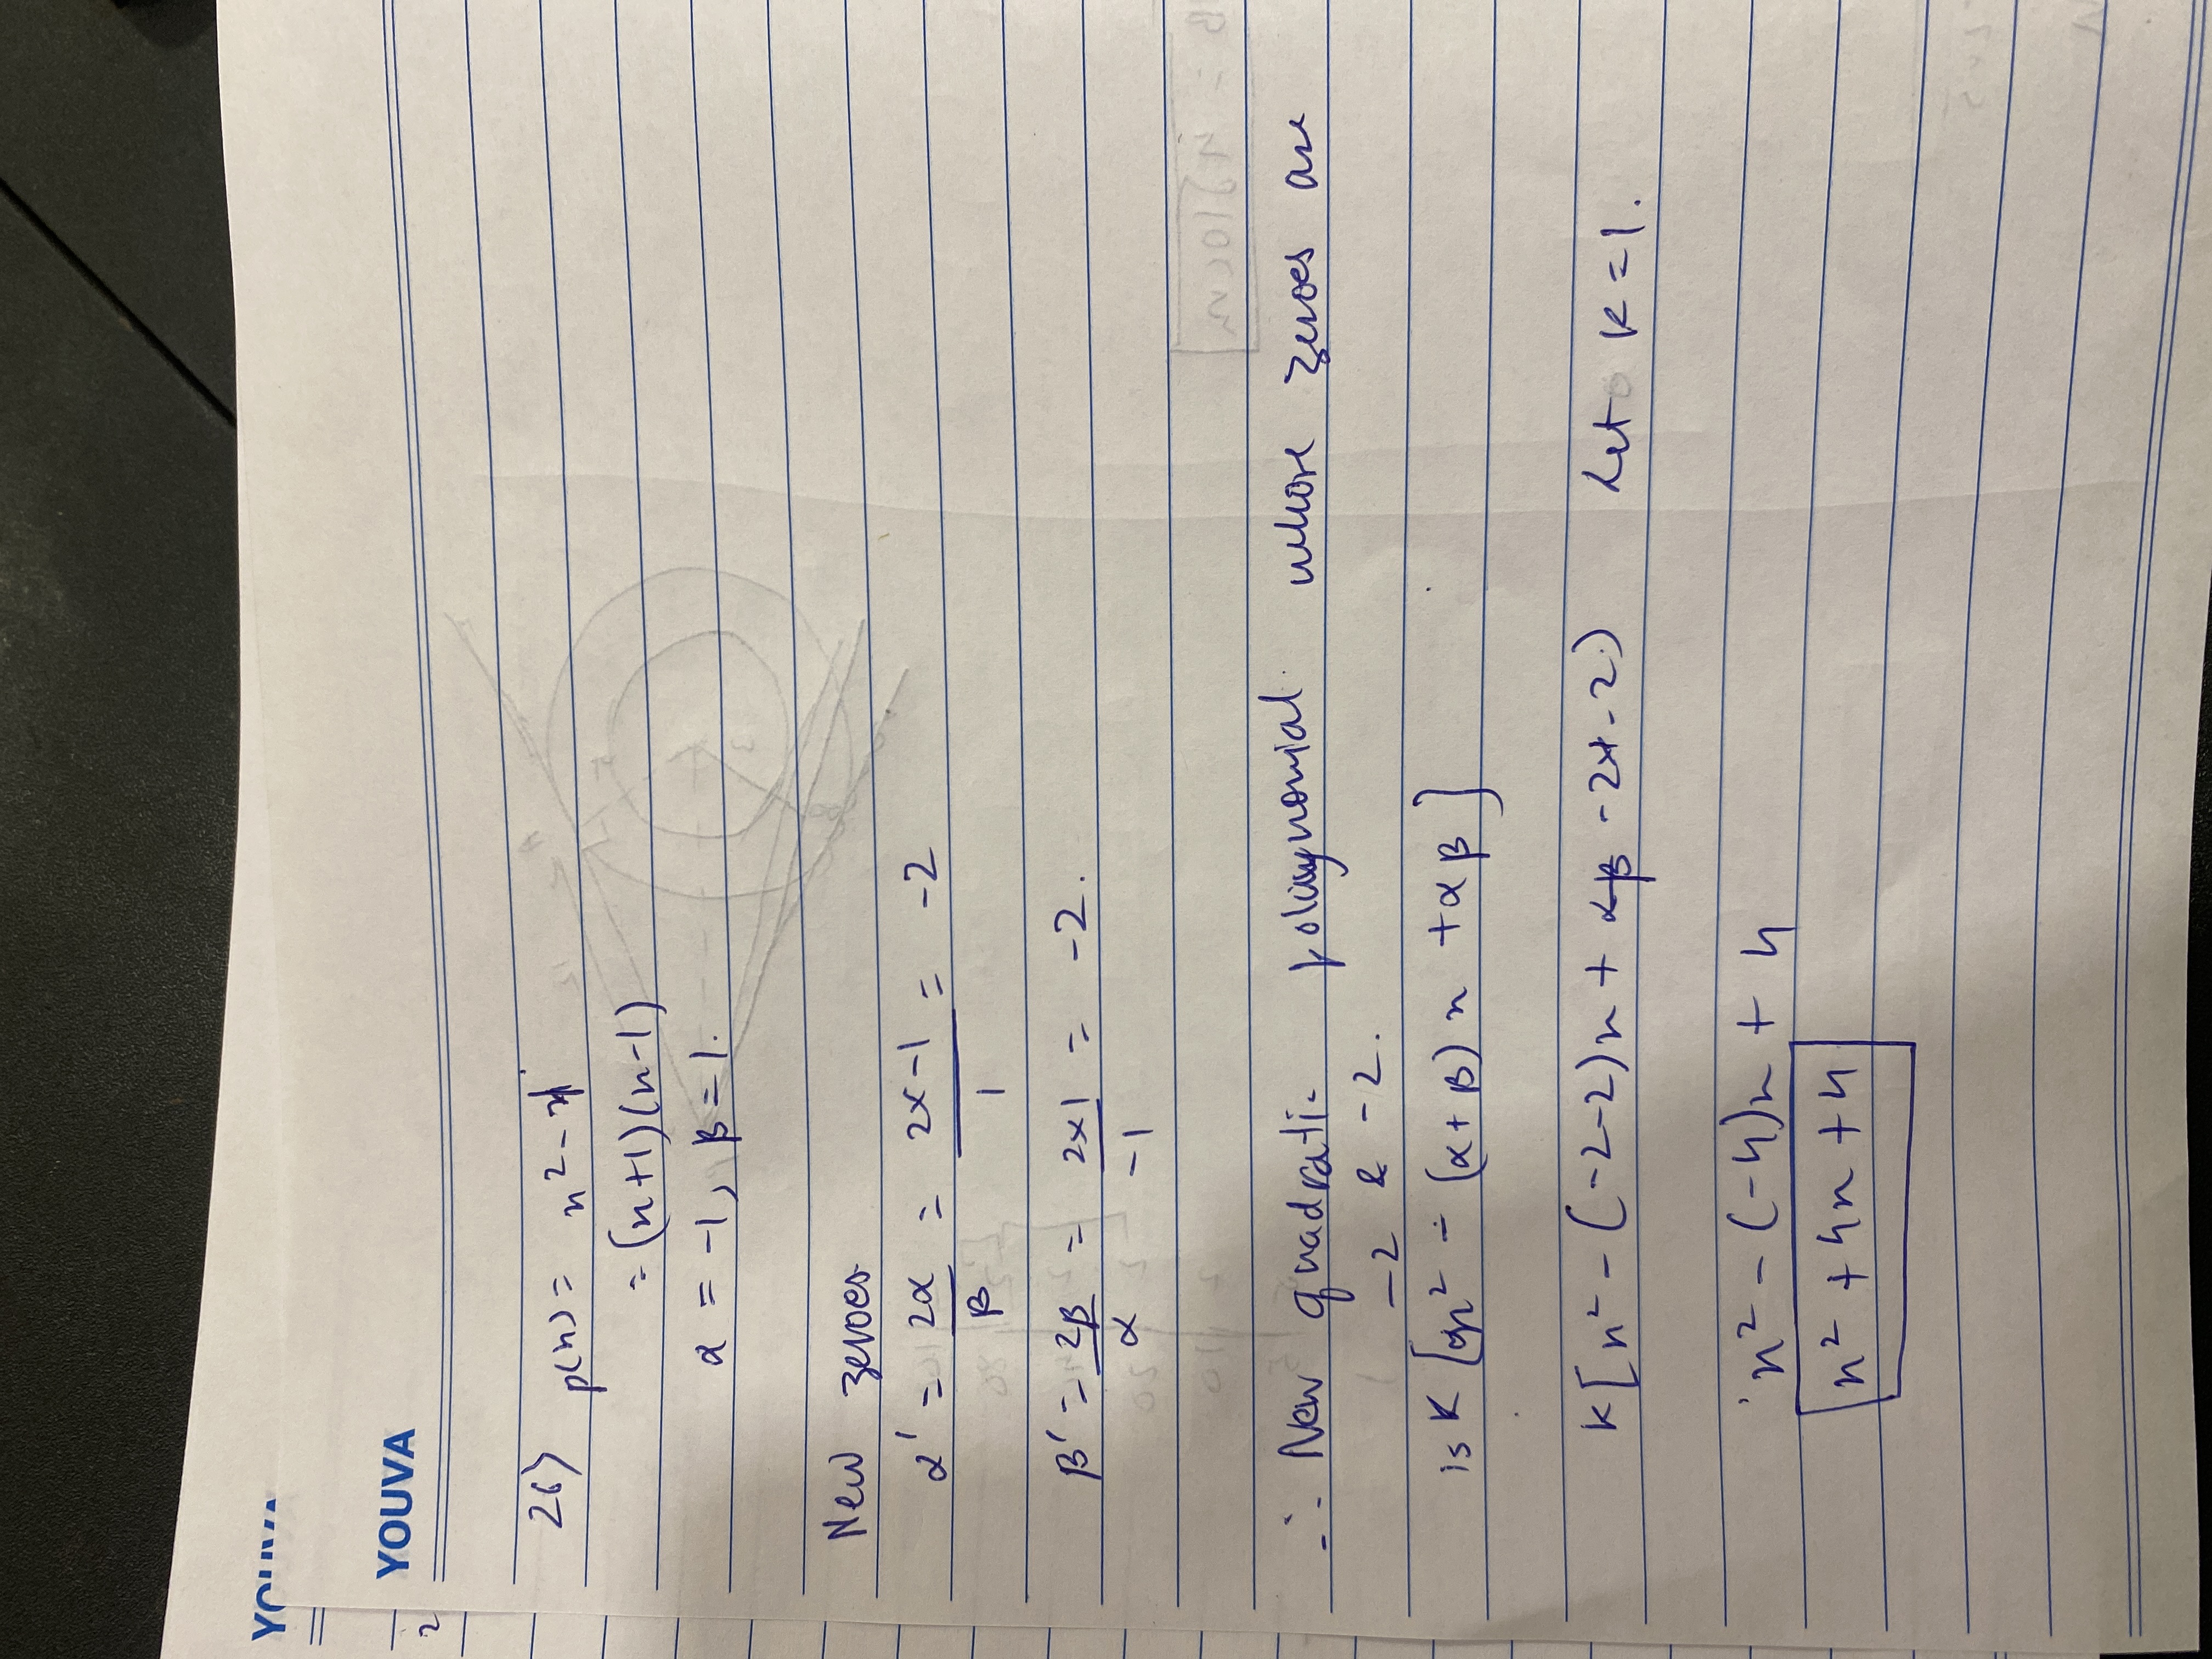 YOUVA
26) p(x) = x² - 1
= (x+1)(x-1)
α = -1, β = 1.
New zeroes
α' = 2α/β = 2x-1/1 = -2
β' = 2β/α = 2x1/-1 = -2.
∴ New quadratic polynomial whose zeroes are
-2 & -2.
is K [x² - (α+β)x + αβ]
K[x² - (-2-2)x + -2x-2) Let K = 1.
x² - (-4)x + 4
x² + 4x + 4